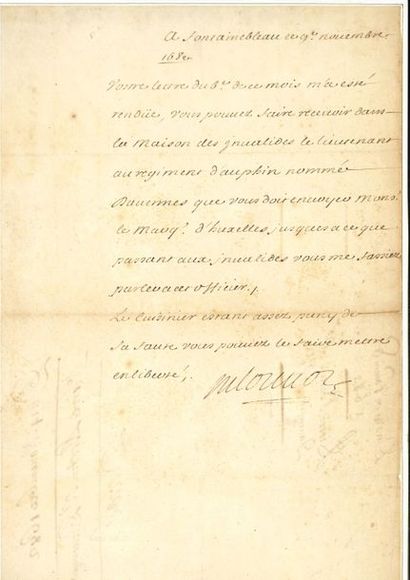 A Fontainebleau ce 9e novembre
168
Vostre lettre du 8e de ce mois m'a esté
rendüe, vous pouvez faire recevoir dans
la maison des jnvalides le lieutenant
au regiment dauphin nommé
Davennes que vous doit envoyer Monsr
le Marqs d'huxelles, jusques a ce que
passant aux jnvalides vous me fassiez
parler a cet officier.
Le Cuisinier estant assez puny de
sa faute vous pouvez le faire mettre
en liberté.